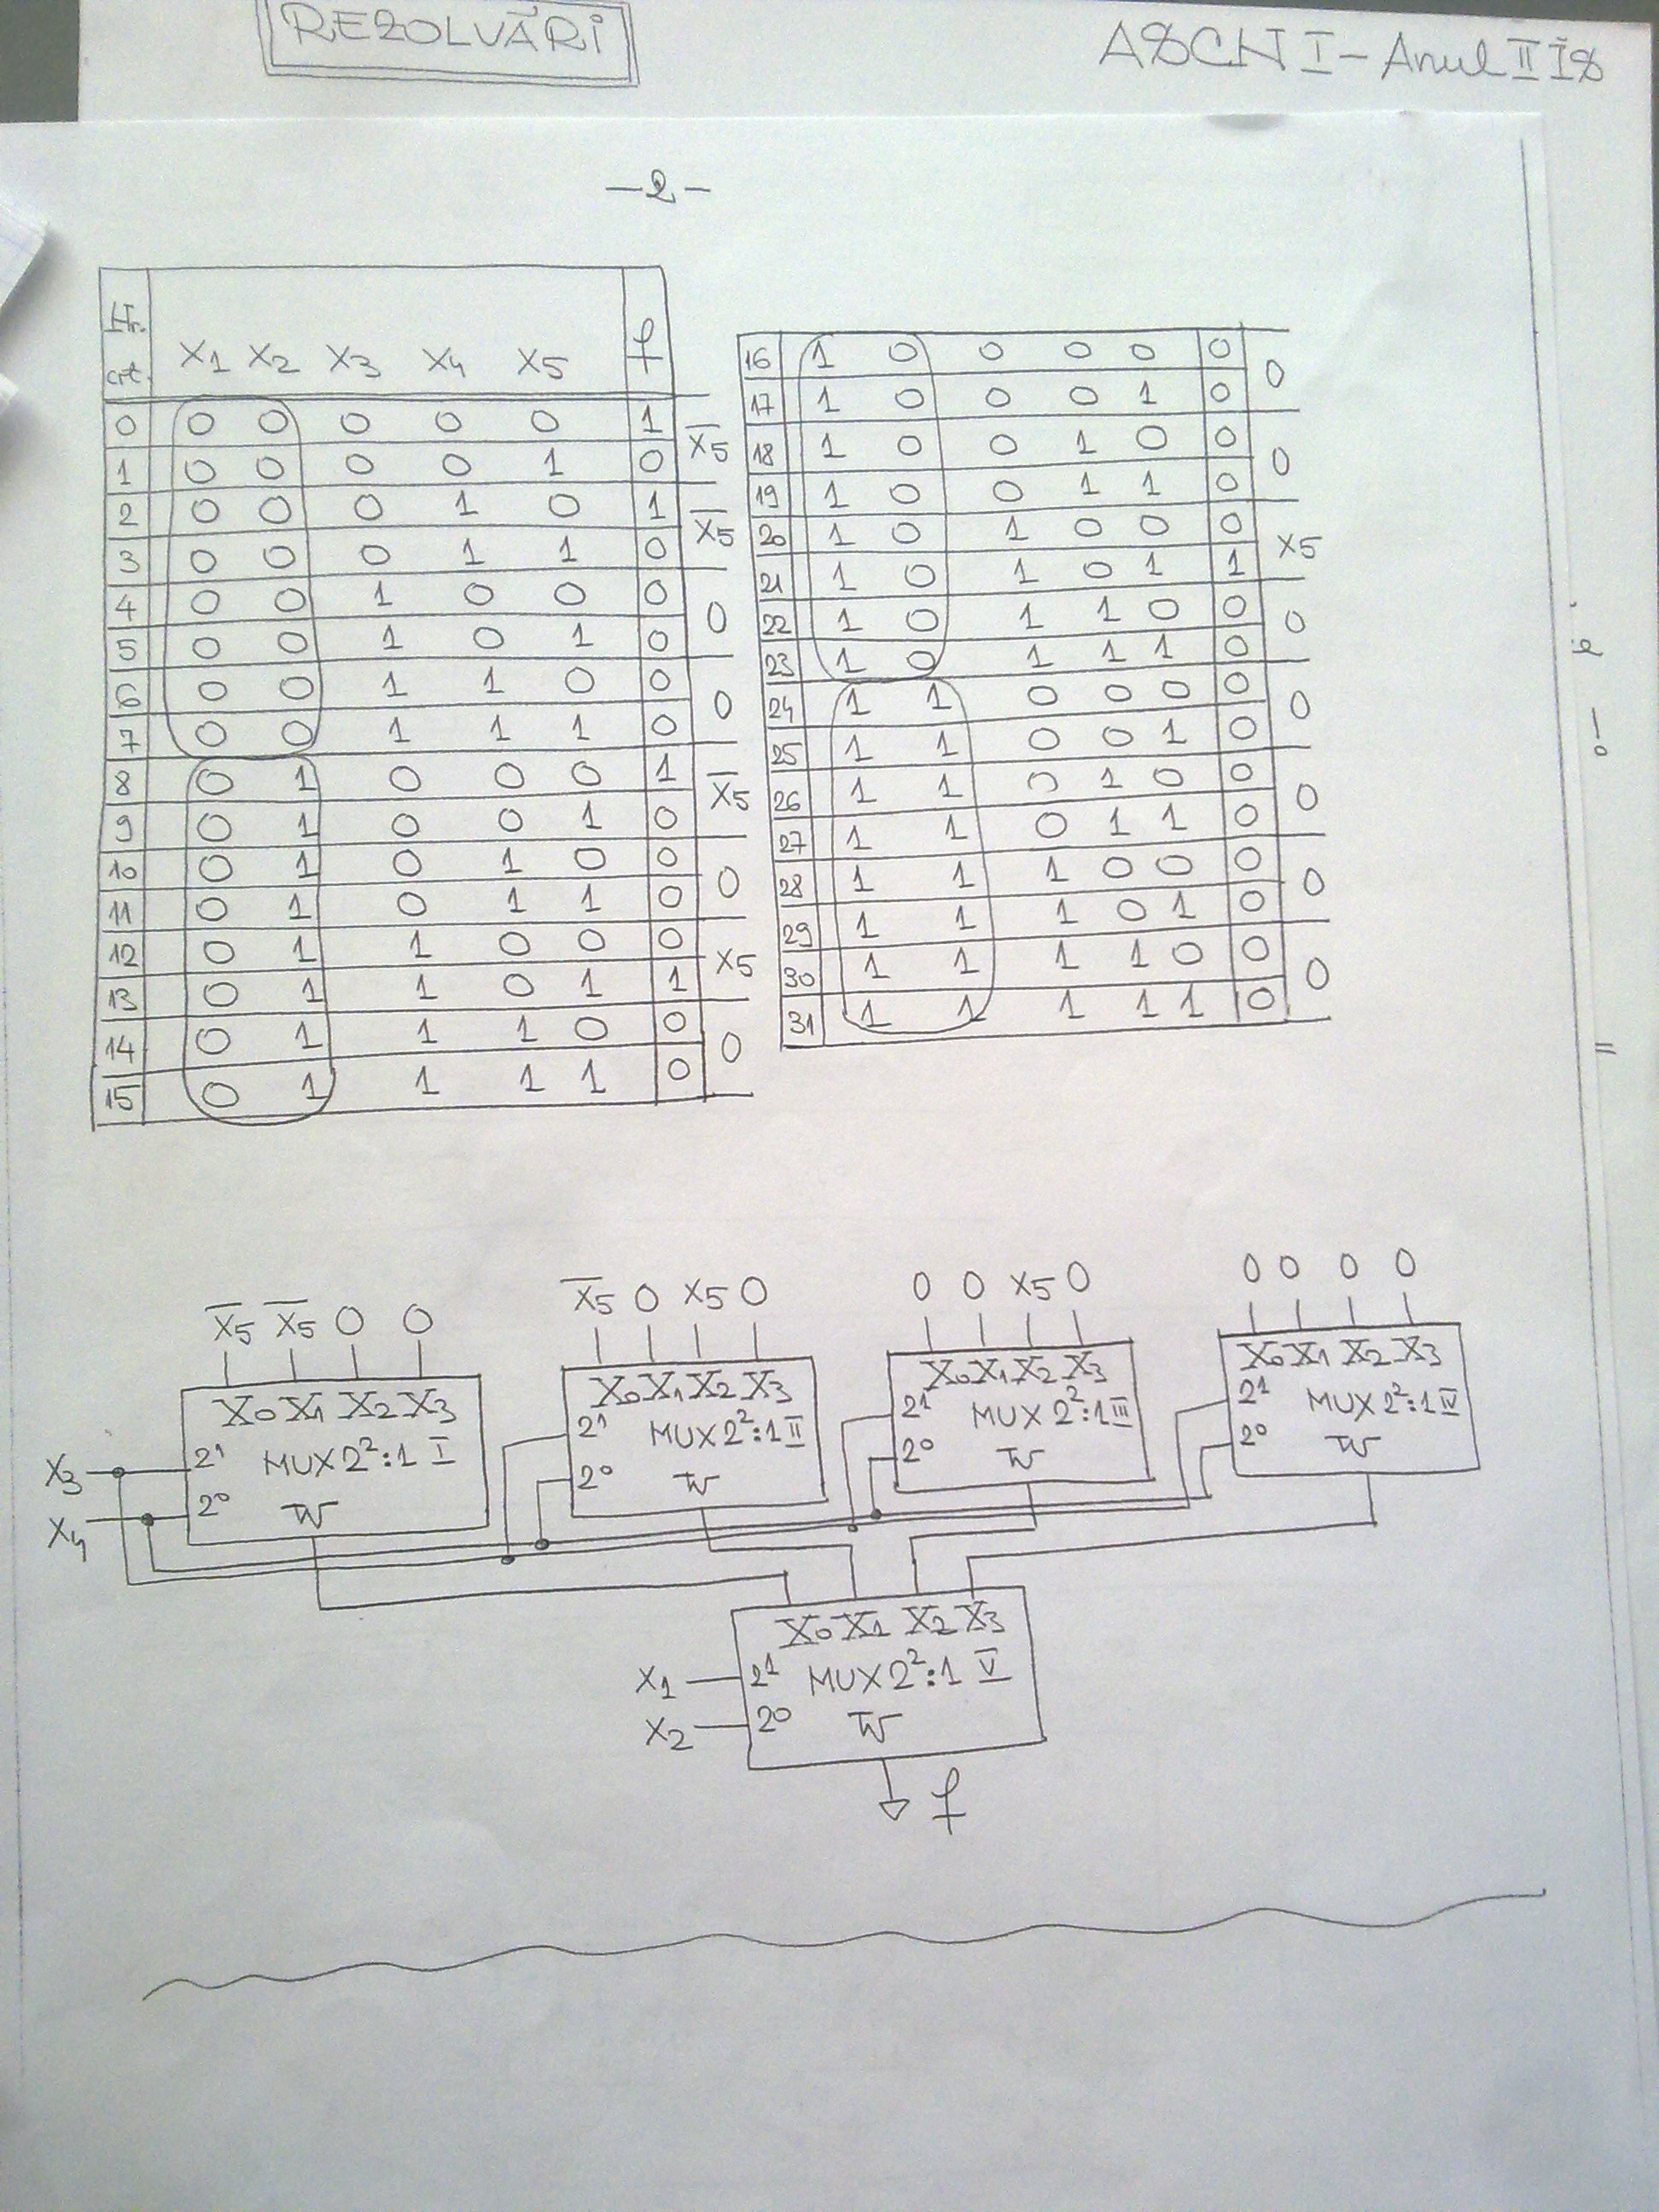 REZOLVĂRI
ASCN I - Anul II IS
-2-
Nr. crt. X1 X2 X3 X4 X5 f
0 0 0 0 0 0 1
1 0 0 0 0 1 0
X̅5
2 0 0 0 1 0 1
3 0 0 0 1 1 0
X̅5
4 0 0 1 0 0 0
5 0 0 1 0 1 0
0
6 0 0 1 1 0 0
7 0 0 1 1 1 0
0
8 0 1 0 0 0 1
9 0 1 0 0 1 0
X̅5
10 0 1 0 1 0 0
11 0 1 0 1 1 0
0
12 0 1 1 0 0 0
13 0 1 1 0 1 1
X5
14 0 1 1 1 0 0
15 0 1 1 1 1 0
0
16 1 0 0 0 0 0
17 1 0 0 0 1 0
0
18 1 0 0 1 0 0
19 1 0 0 1 1 0
0
20 1 0 1 0 0 0
21 1 0 1 0 1 1
X5
22 1 0 1 1 0 0
23 1 0 1 1 1 0
0
24 1 1 0 0 0 0
25 1 1 0 0 1 0
0
26 1 1 0 1 0 0
27 1 1 0 1 1 0
0
28 1 1 1 0 0 0
29 1 1 1 0 1 0
0
30 1 1 1 1 0 0
31 1 1 1 1 1 0
0
X̅5 X̅5 0 0
X0 X1 X2 X3
X3 2¹ MUX 2²:1 I
X4 2⁰ W
X̅5 0 X5 0
X0 X1 X2 X3
2¹ MUX 2²:1 II
2⁰ W
0 0 X5 0
X0 X1 X2 X3
2¹ MUX 2²:1 III
2⁰ W
0 0 0 0
X0 X1 X2 X3
2¹ MUX 2²:1 IV
2⁰ W
X0 X1 X2 X3
X1 2¹ MUX 2²:1 V
X2 2⁰ W
f